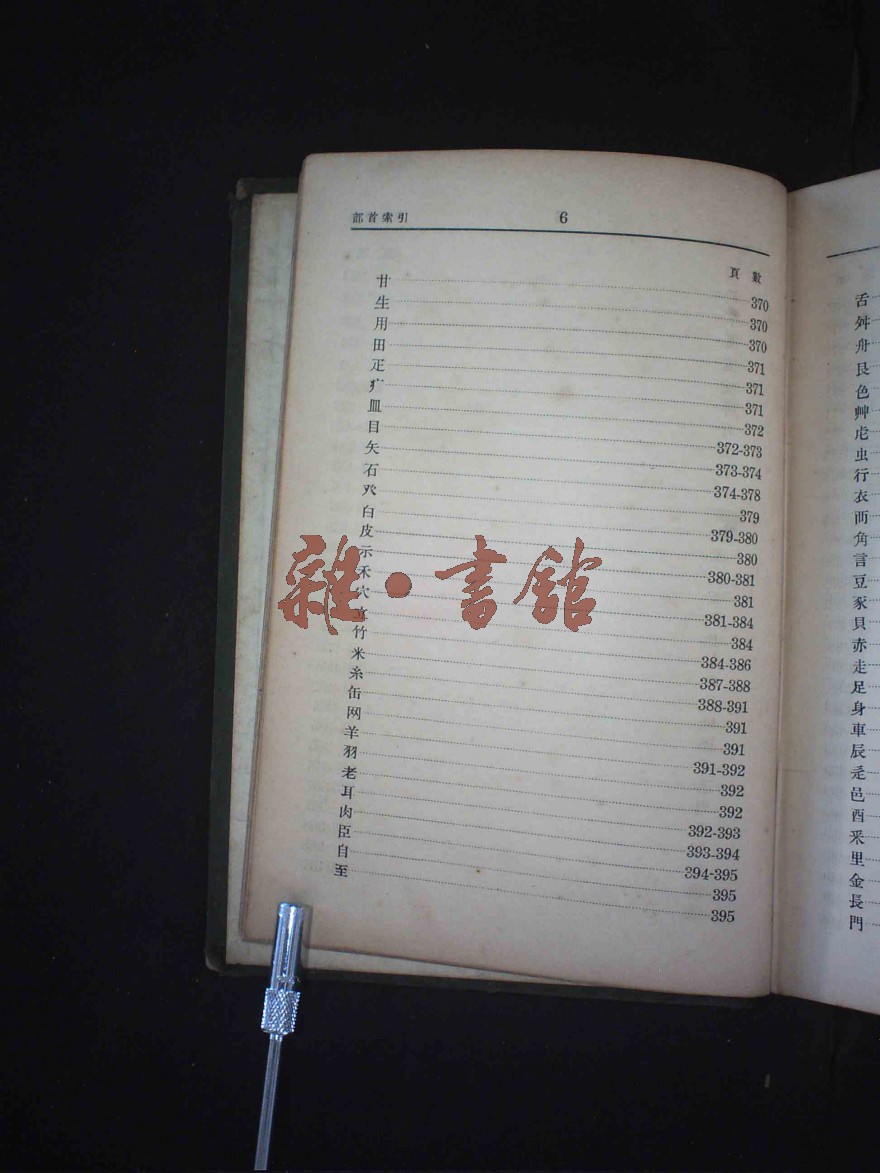 部首索引 6
頁數
甘 370
生 370
用 370
田 371
疋 371
疒 371
皿 372
目 372-373
矢 373-374
石 374-378
癶 379
白 379-380
皮 380
示 380-381
禾 381
穴 381-384
立 384
竹 384-386
米 387-388
糸 388-391
缶 391
网 391
羊 391-392
羽 392
老 392
耳 392-393
肉 393-394
臣 394-395
自 395
至 395
雜·書館
舌
舛
舟
艮
色
艸
虍
虫
行
衣
襾
角
言
豆
豕
貝
赤
走
足
身
車
辰
辵
邑
酉
釆
里
金
長
門